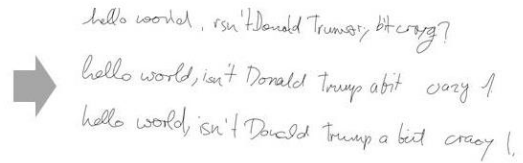 hello world, isn't Donald Trump, bit crazy?
hello world, isn't Donald Trump a bit crazy !
hello world, isn't Donald Trump a bit crazy !.